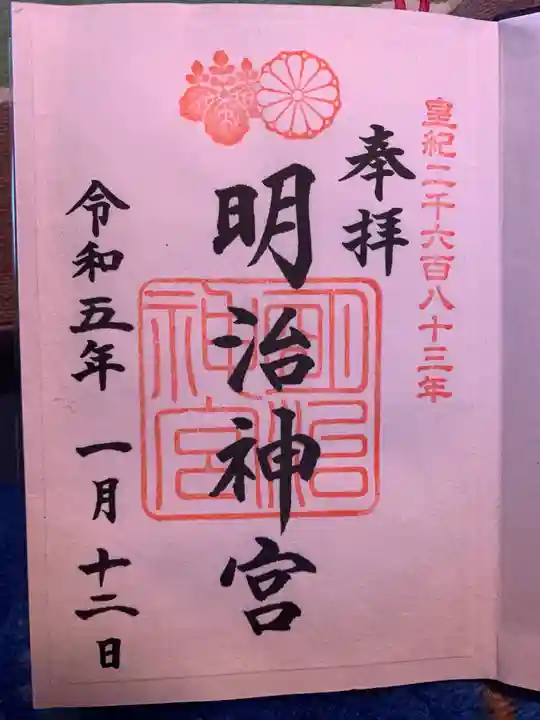 皇紀二千六百八十三年
奉拝
明治神宮
明治神宮
令和五年 一月十二日